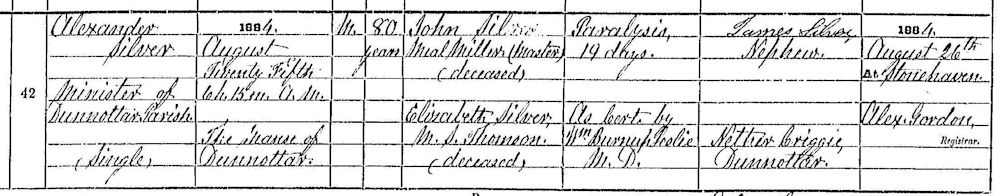 42
Alexander
Silver
Minister of
Dunnottar Parish
(Single)
1884.
August
Twenty Fifth
6h. 15m. A.M.
The Manse of
Dunnottar.
M.
80
years
John Silver
Meal Miller (Master)
(deceased)
Elizabeth Silver,
M. S. Thomson
(deceased)
Paralysis,
19 days.
As Cert. by
Wm
M. D.
James Silver,
Nephew.
Nether Criggie,
Dunnottar.
1884.
August 26th
At Stonehaven.
Alex. Gordon,
Registrar.